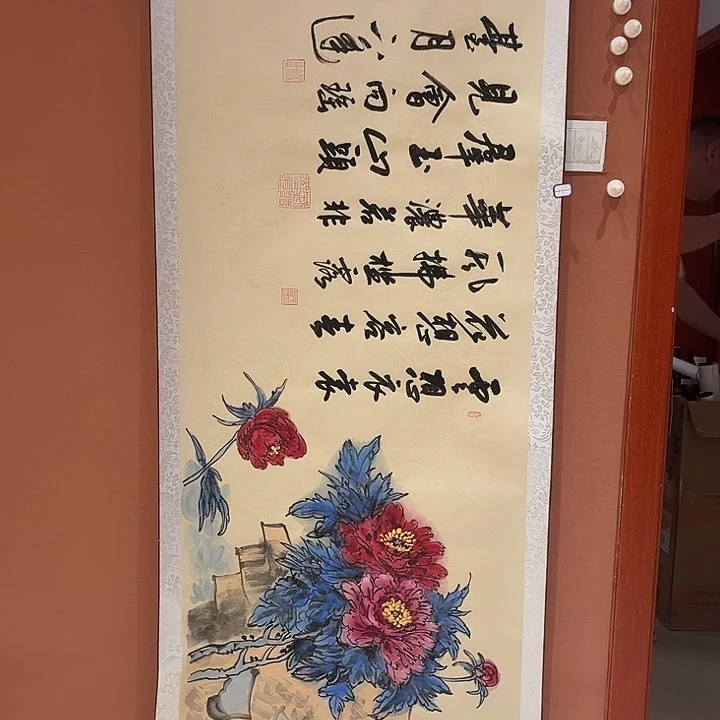 雲想衣裳
花想容春
風拂檻露
華濃若非
羣玉山頭
見會向瑶
臺月下逢